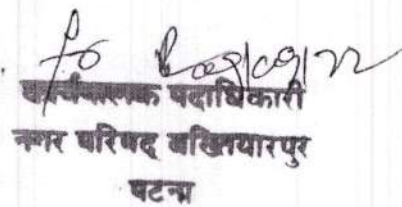 कार्यपालक पदाधिकारी
नगर परिषद बख्तियारपुर
पटना